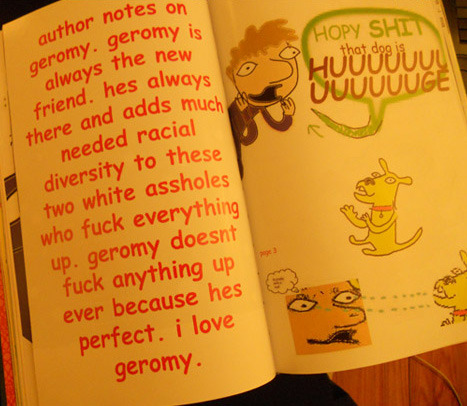 author notes on
geromy. geromy is
always the new
friend. hes always
there and adds much
needed racial
diversity to these
two white assholes
who fuck everything
up. geromy doesnt
fuck anything up
ever because hes
perfect. i love
geromy.
HOPY SHIT
that dog is
HUUUUUUU
UUUUUUUGE
page 3